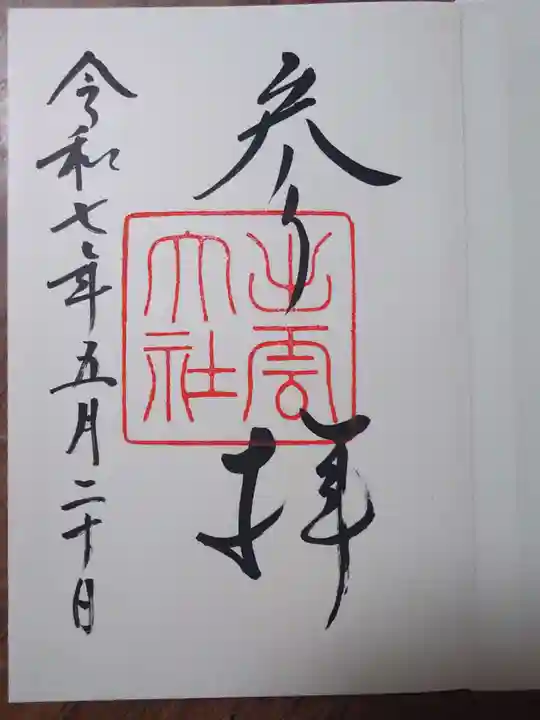 参拝
出雲
大社
令和七年五月二十日